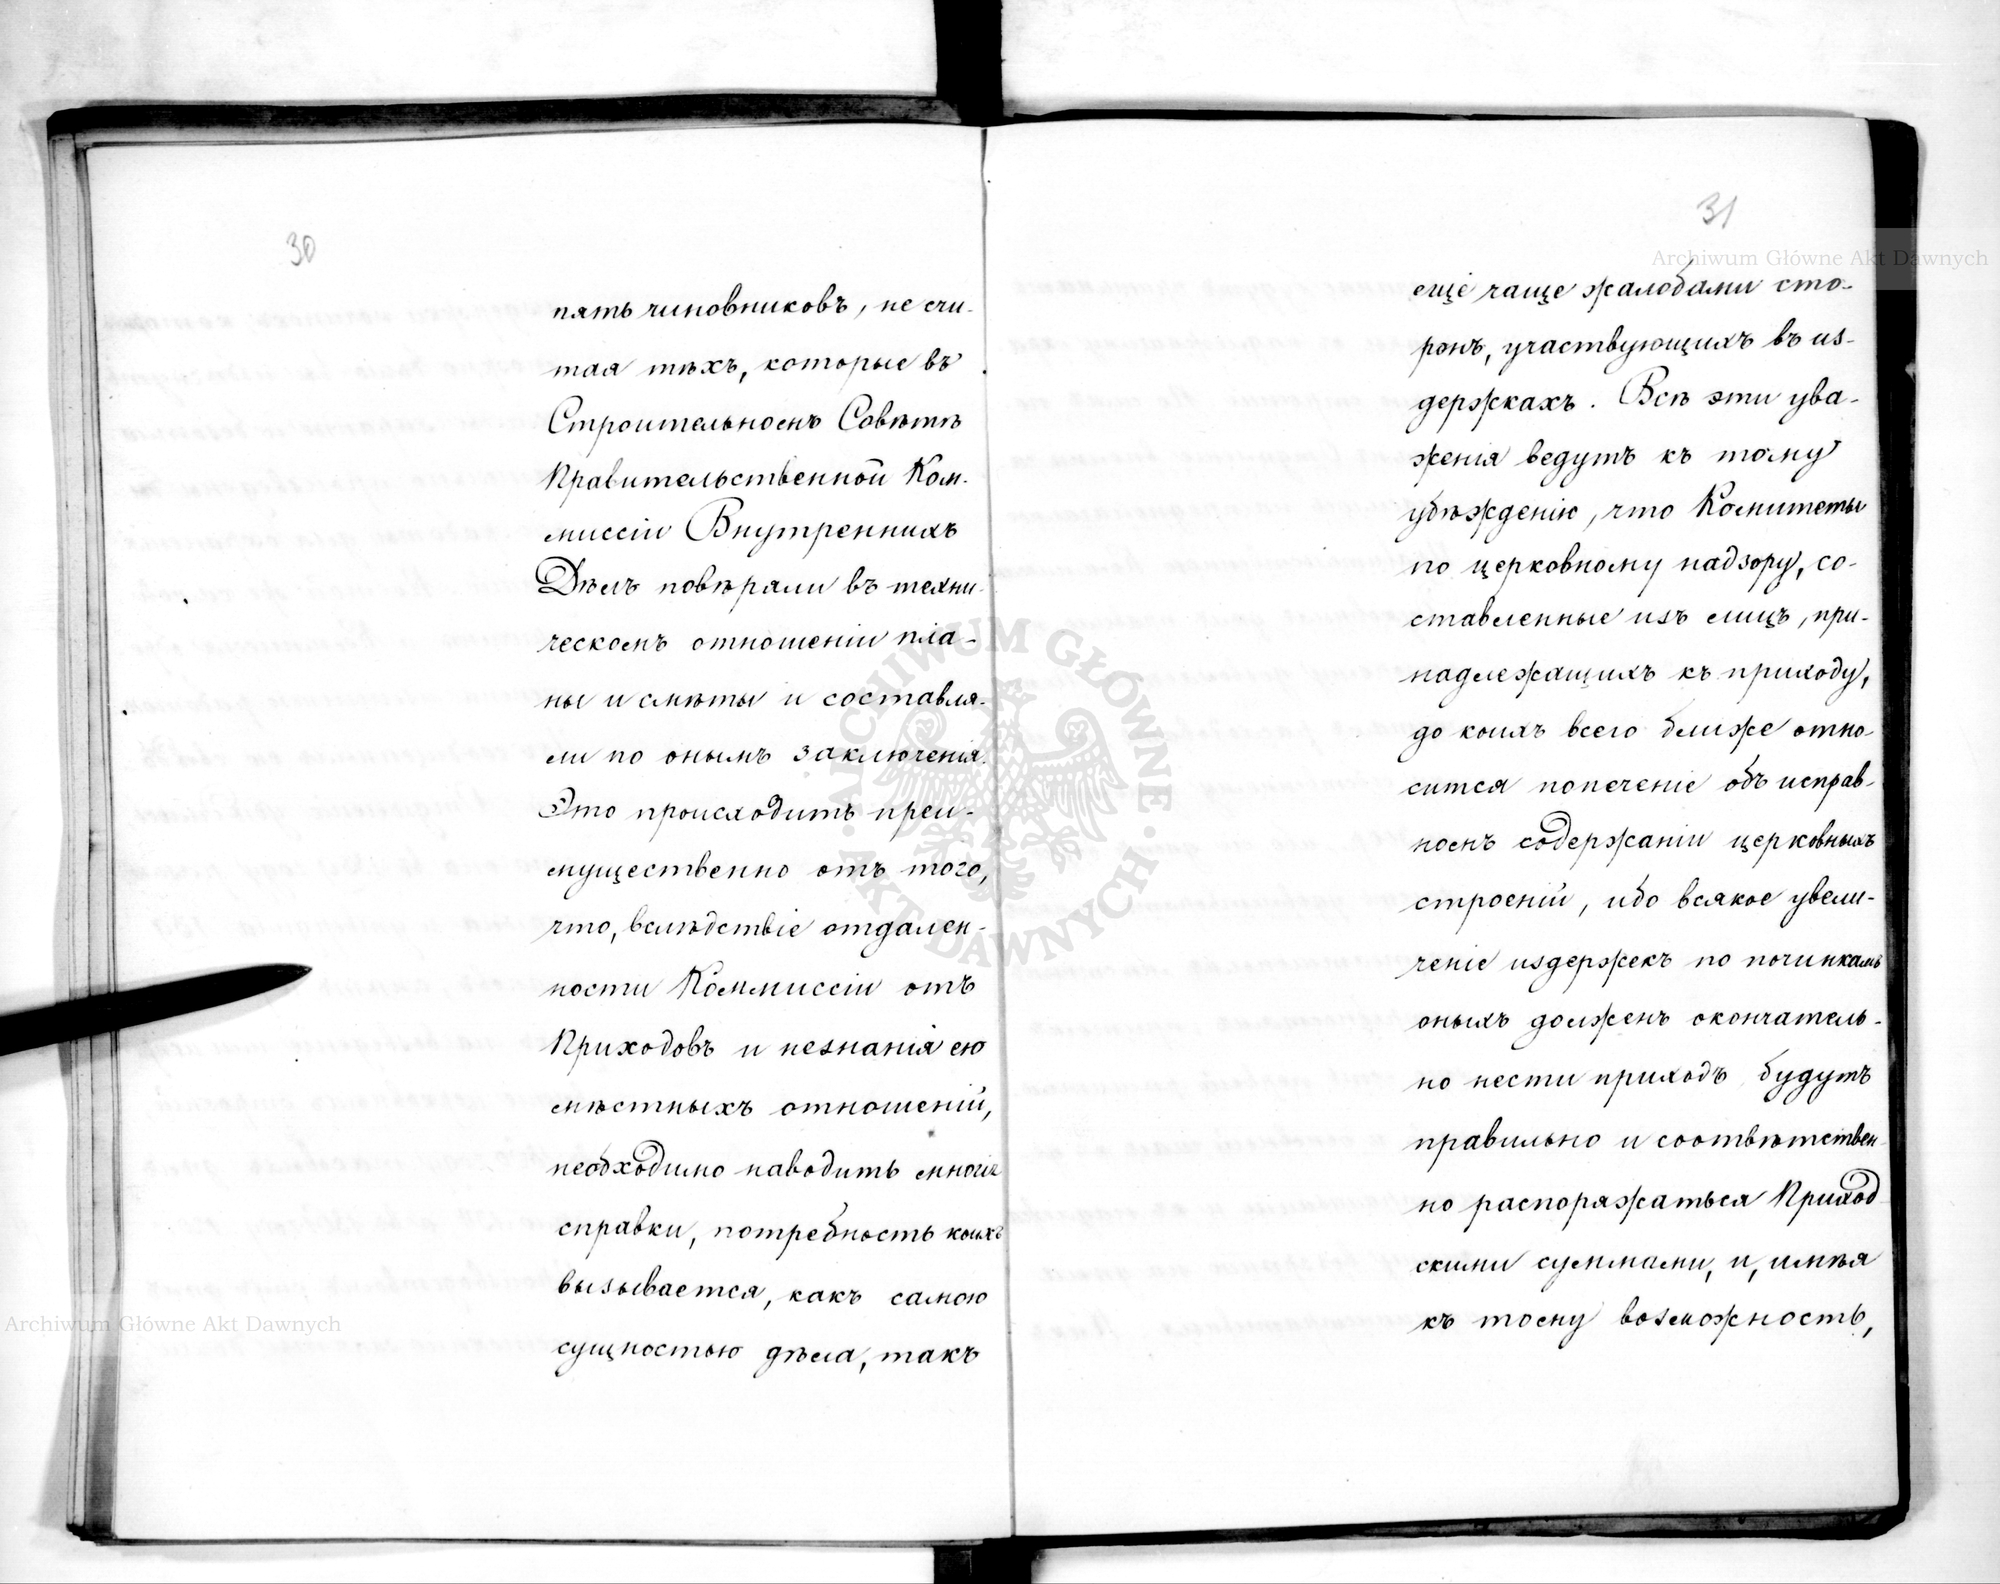 30
пять чиновниковъ, не счи-
тая тѣхъ, которые въ
Строительномъ Совѣтѣ
Правительственной Ком-
миссіи Внутреннихъ
Дѣлъ повѣряли въ техни-
ческомъ отношеніи пла-
ны и смѣты и составля-
ли по онымъ заключенія.
Это происходитъ преи-
мущественно отъ того,
что, вслѣдствіе отдален-
ности Коммиссіи отъ
Приходовъ и незнанія ею
мѣстныхъ отношеній,
необходимо наводить многія
справки, потребность коихъ
вызывается, какъ самою
сущностью дѣла, такъ
31
еще чаще жалобами сто-
ронъ, участвующихъ въ из-
держкахъ. Всѣ эти ува-
женія ведутъ къ тому
убѣжденію, что Комитеты
по церковному надзору, со-
ставленные изъ лицъ, при-
надлежащихъ къ приходу,
до коихъ всего ближе отно-
сится попеченіе объ исправ-
номъ содержаніи церковныхъ
строеній, ибо всякое увели-
ченіе издержекъ по починкамъ
оныхъ долженъ окончатель-
но нести приходъ будутъ
правильно и соотвѣтствен-
но распоряжаться Приход-
скими суммами, и, имѣя
къ тому возможность,
Archiwum Główne Akt Dawnych
Archiwum Główne Akt Dawnych
ARCHIWUM GŁÓWNE AKT DAWNYCH